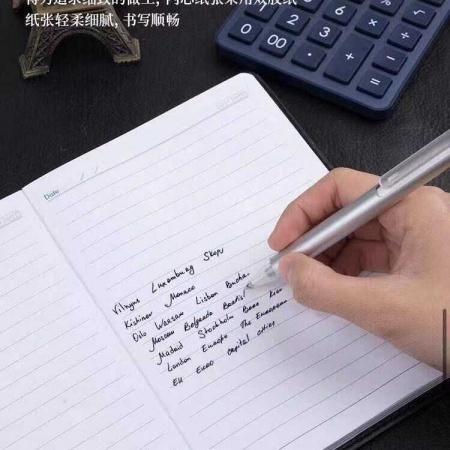 纸张轻柔细腻，书写顺畅
Date / /
Vilnyus Luxemburg Skop
Kishinev Monaco
Oslo Warsaw Lisbon Bucha
Moscow Belgrade
Madrid Stockholm Bern Kiev
London Europe The European
EU Euro capital cities